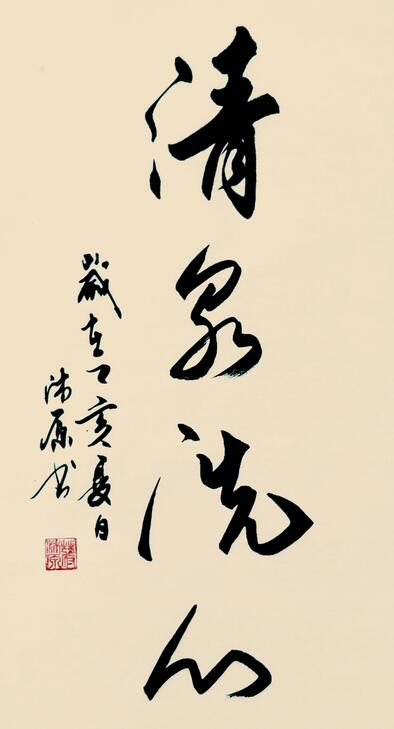 清泉洗心
歲在乙亥夏日
沛原书